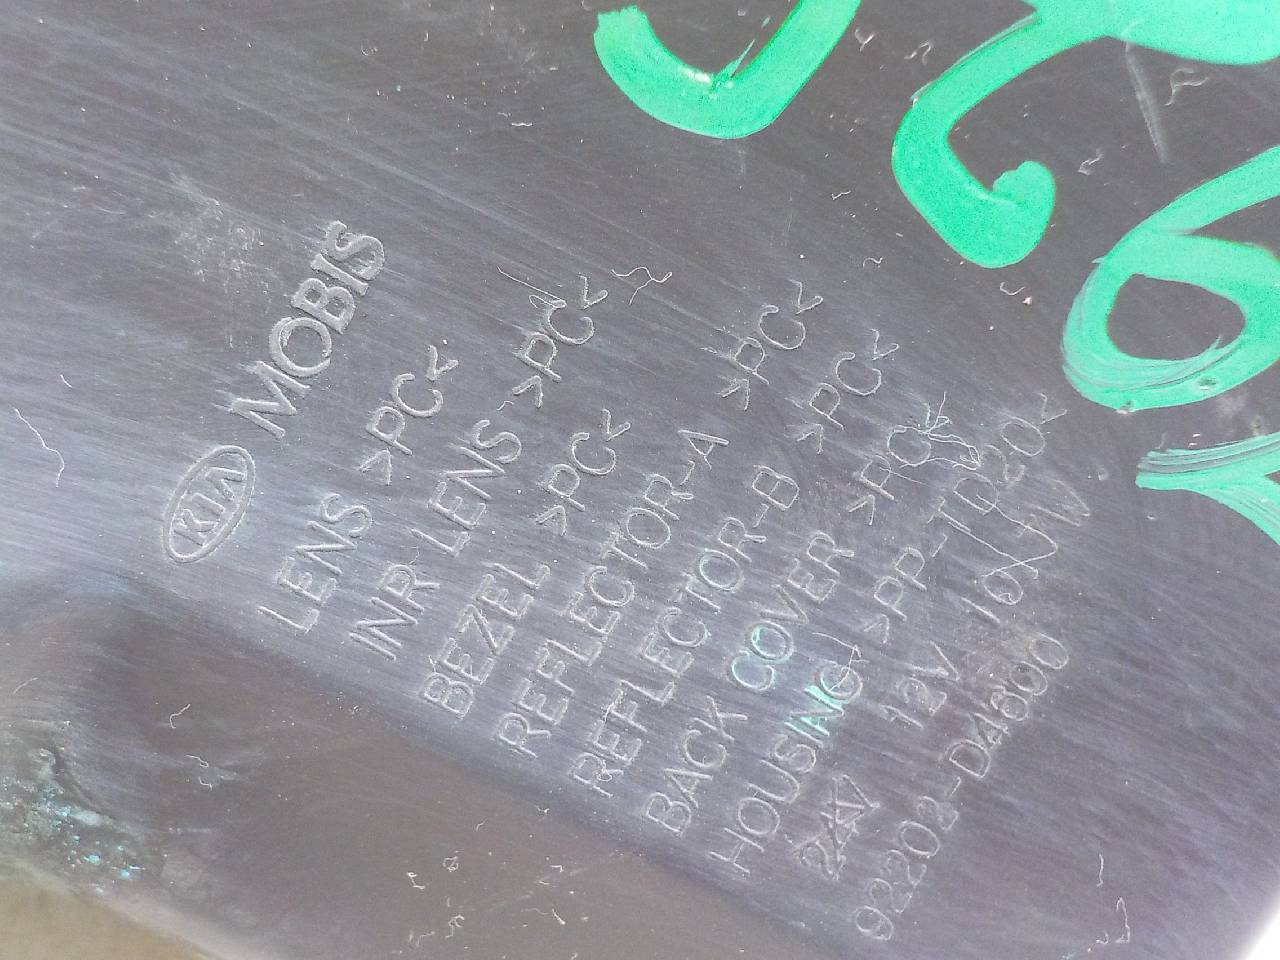 KIA MOBIS
LENS >PC<
INR LENS >PC<
BEZEL >PC<
REFLECTOR-A >PC<
REFLECTOR-B >PC<
BACK COVER >PC<
HOUSING >PP-TD20<
12V 19W
92202-D4600